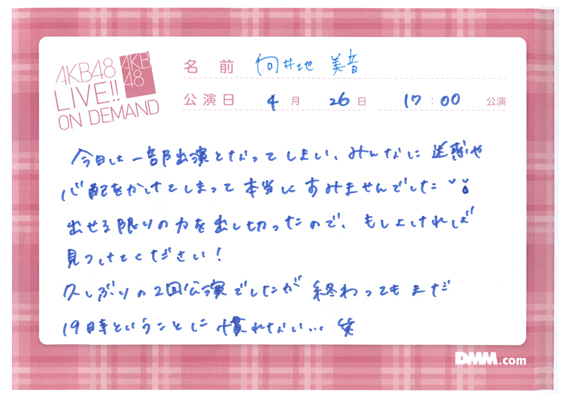 AKB48
LIVE!!
ON DEMAND
AKB
48
名前 向井地 美音
公演日 4月 26日 17:00 公演
今日は一部出演となってしまい、みんなに迷惑や
心配をかけてしまって本当にすみませんでした
出せる限りの力を出し切ったので、もしよければ
見つけてください！
久しぶりの2回公演でしたが終わってもまだ
19時ということに慣れない... 笑
DMM.com